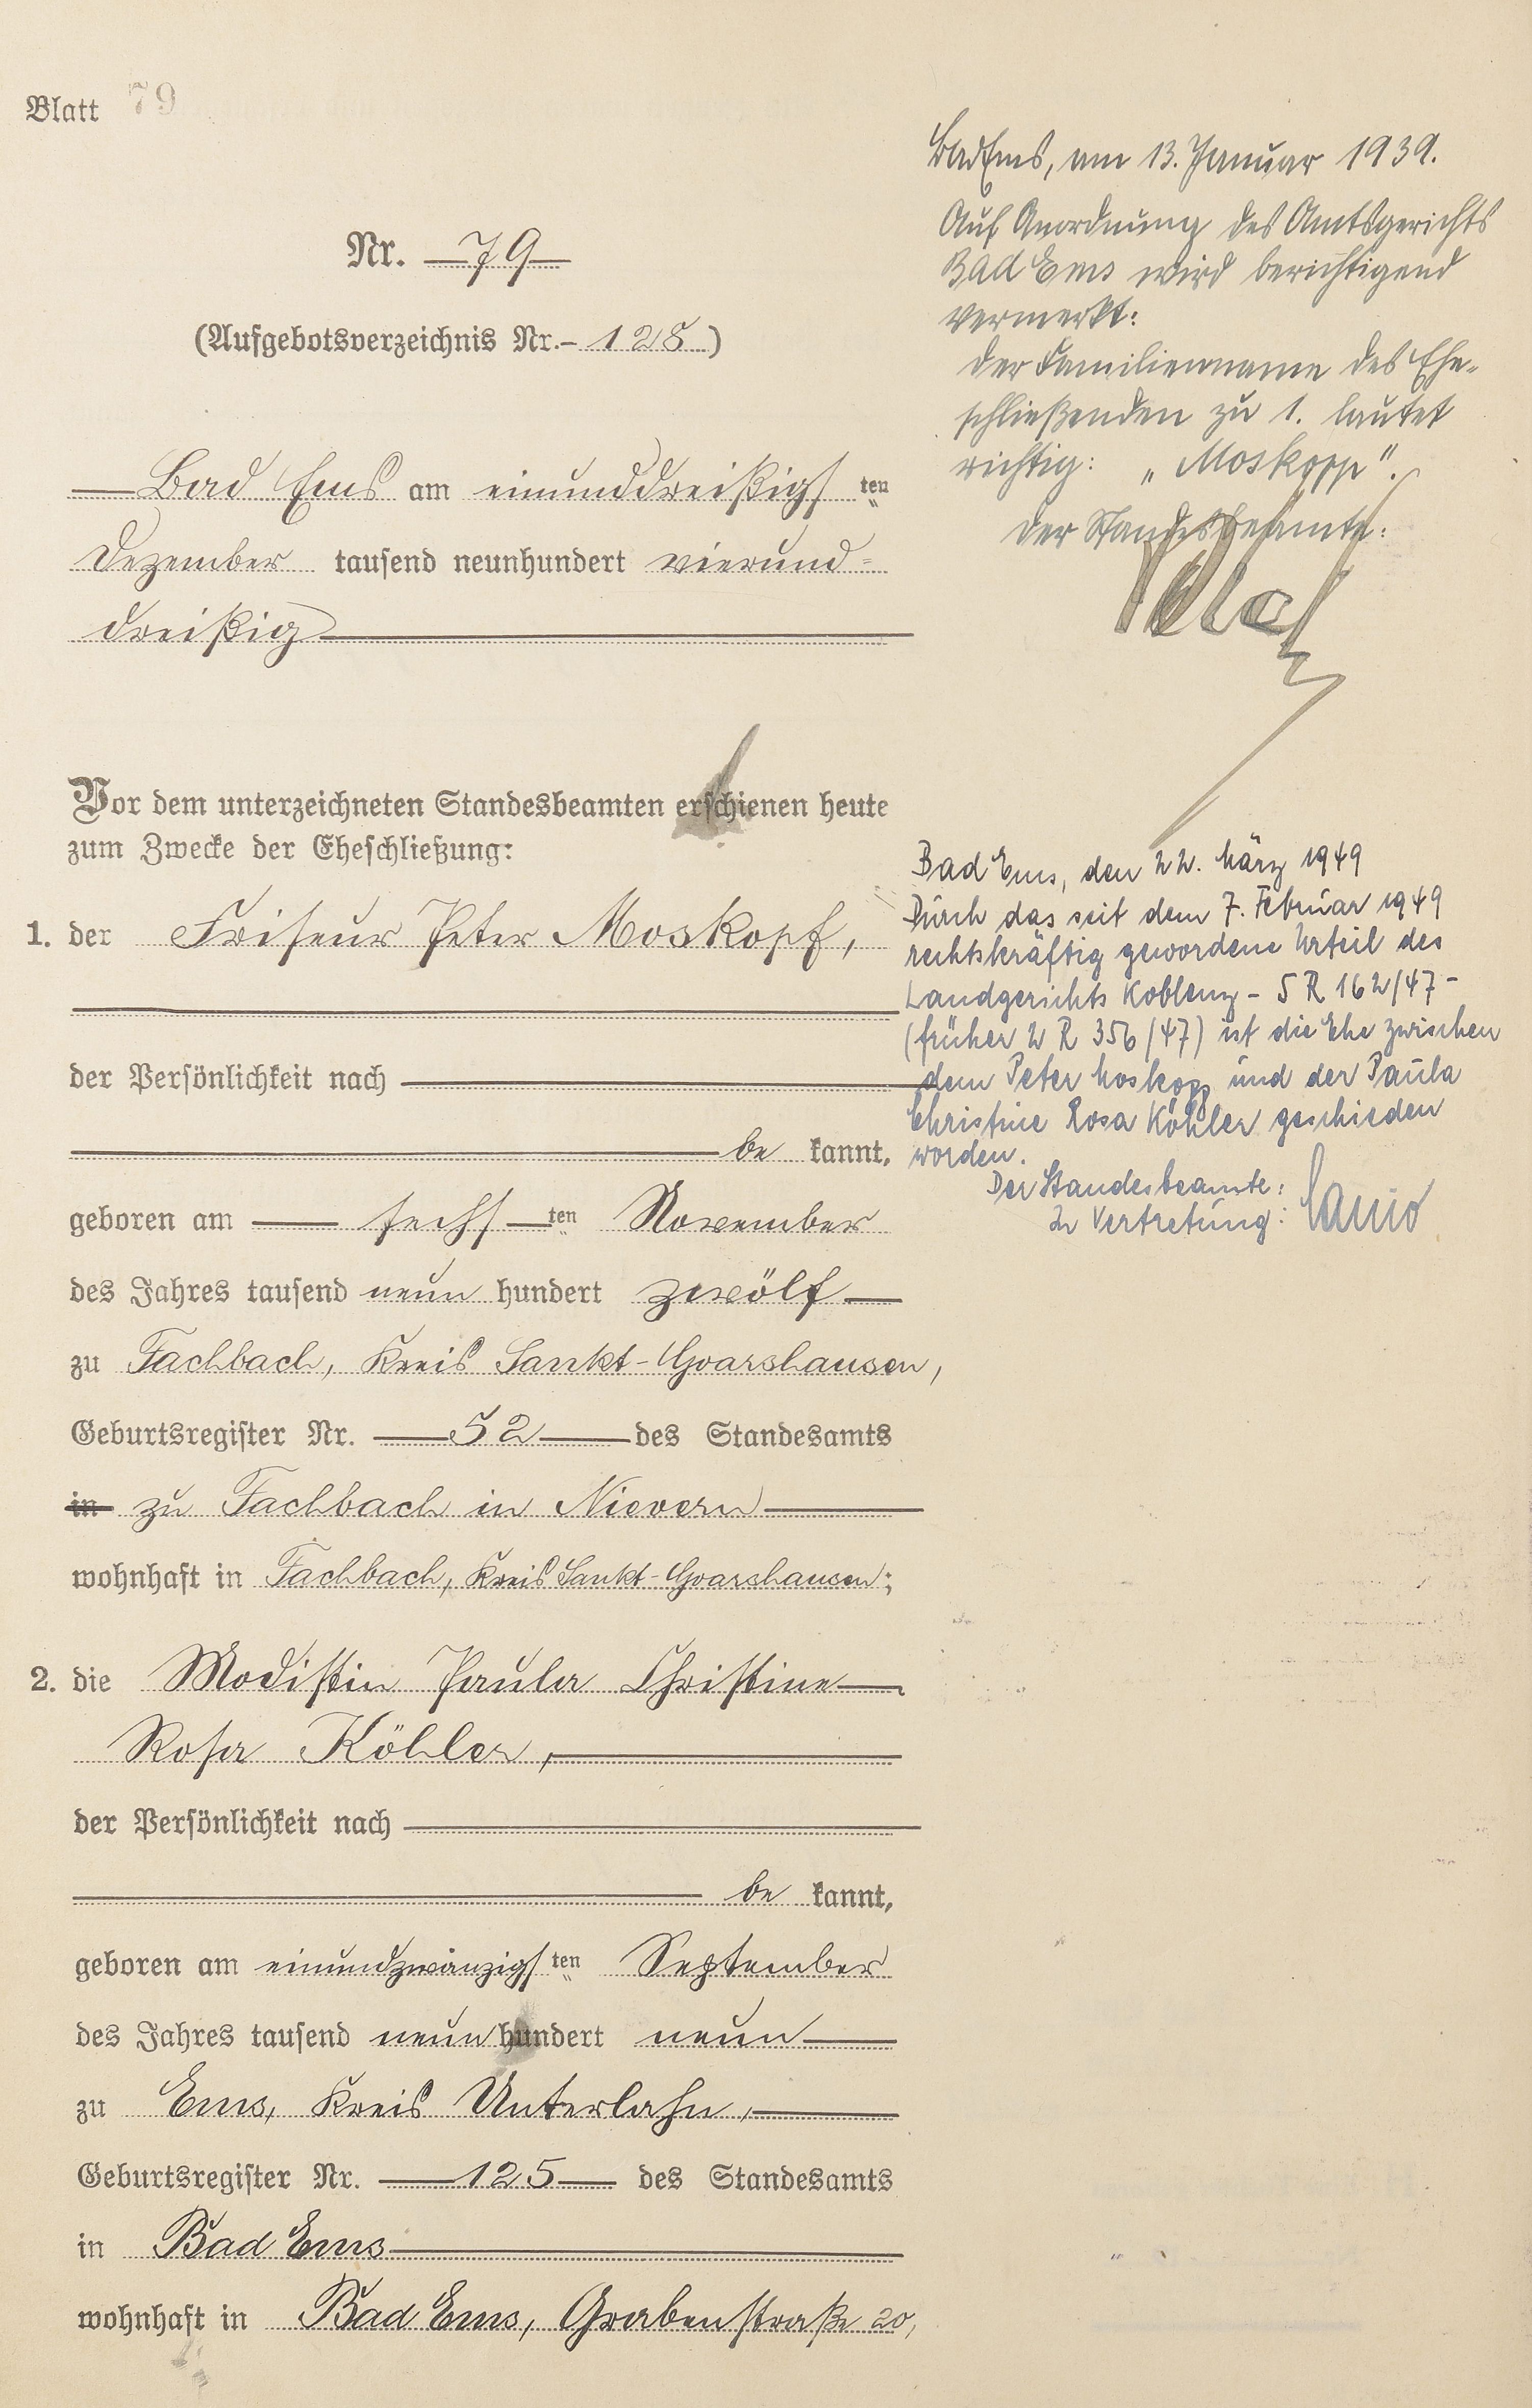 Blatt 79
Nr. 79
(Aufgebotsverzeichnis Nr. 128)
Bad Ems am einunddreißigsten
Dezember tausend neunhundert vierund-
dreißig
Vor dem unterzeichneten Standesbeamten erschienen heute
zum Zwecke der Eheschließung:
1. der Friseur Peter Moskopf,
der Persönlichkeit nach
be kannt,
geboren am sechsten November
des Jahres tausend neun hundert zwölf
zu Fachbach, Kreis Sankt-Goarshausen,
Geburtsregister Nr. 52 des Standesamts
in zu Fachbach in Nievern
wohnhaft in Fachbach, Kreis Sankt-Goarshausen;
2. die Modistin Paula Christine
Rosa Köhler,
der Persönlichkeit nach
be kannt,
geboren am einundzwanzigsten September
des Jahres tausend neun hundert neun
zu Ems, Kreis Unterlahn,
Geburtsregister Nr. 125 des Standesamts
in Bad Ems
wohnhaft in Bad Ems, Grabenstraße 20,
Bad Ems, am 13. Januar 1939.
Auf Anordnung des Amtsgerichts
Bad Ems wird berichtigend
vermerkt:
Der Familienname des Ehe-
schließenden zu 1. lautet
richtig: „Moskopp".
Der Standesbeamte:
Bad Ems, den 22. März 1949
Durch das seit dem 7. Februar 1949
rechtskräftig gewordene Urteil des
Landgerichts Koblenz - 5 R 162/47 -
(früher 2 R 356/47) ist die Ehe zwischen
dem Peter Moskopp und der Paula
Christine Rosa Köhler geschieden
worden.
Der Standesbeamte:
In Vertretung: